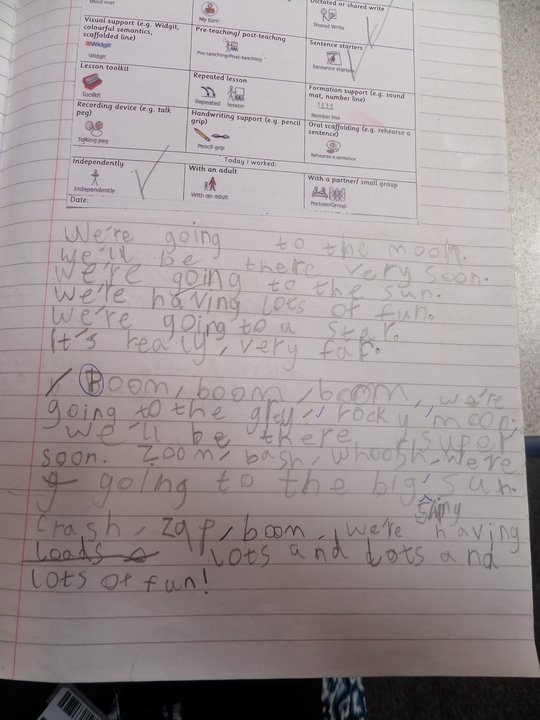 Word mat
My turn
Dictated or shared write
Shared Write
Visual support (e.g. Widgit, colourful semantics, scaffolded line)
Widgit
Widgit
Pre-teaching/ post-teaching
Pre-teaching/Post-teaching
Sentence starters
Sentence starters
Lesson toolkit
Toolkit
Repeated lesson
Repeated lesson
Formation support (e.g. sound mat, number line)
Number line
Recording device (e.g. talk peg)
Talking peg
Handwriting support (e.g. pencil grip)
Pencil grip
Oral scaffolding (e.g. rehearse a sentence)
Rehearse a sentence
Today I worked:
Independently
Independently
With an adult
With an adult
With a partner/ small group
Partner/Group
Date:
We're going to the moon.
we'll be there very soon.
we're going to the sun.
we're having lots of fun.
we're going to a star.
It's really, very far.
Boom, boom, boom, we're
going to the grey, rocky moon.
we'll be there super
soon. Zoom, bash, whoosh, we're
going to the big, sun.
shiny
Crash, zap, boom, we're having
loads lots and lots and
lots of fun!